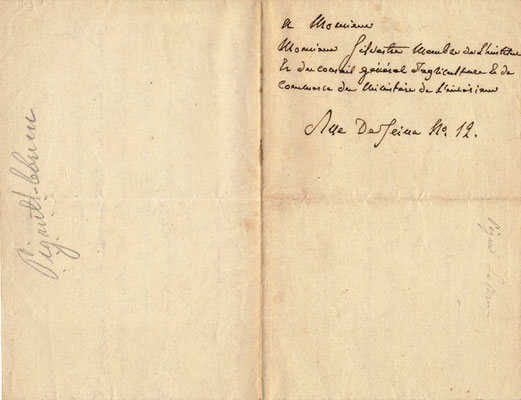 a Monsieur
Monsieur Silvestre Membre de L'institut
Et du conseil général d'agriculture & de
commerce du Ministère de L'intérieur
Rue De Seine No. 12.
Pigault-Lebrun
Pigault Lebrun